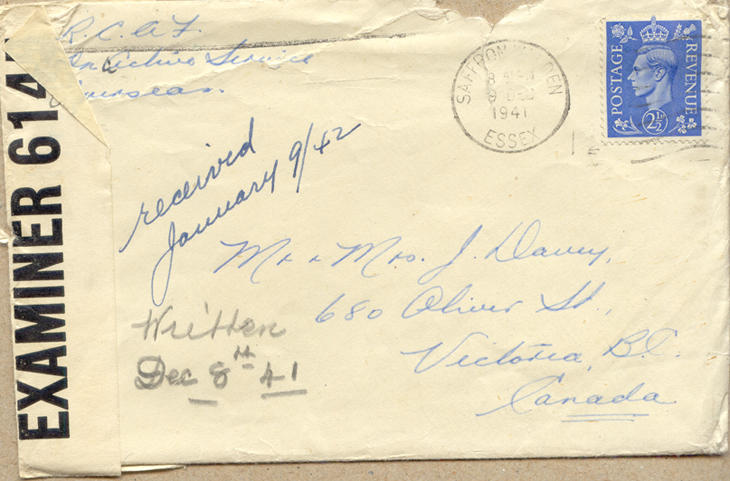 R.C.A.F.
On Active Service
Overseas.
EXAMINER 614
SAFFRON WALDEN
9 DEC
1941
ESSEX
POSTAGE
REVENUE
2½
received
January 9/42
Mr & Mrs. J. Davey,
680 Oliver St.,
Victoria, B.C.
Canada
Written
Dec 8th 41